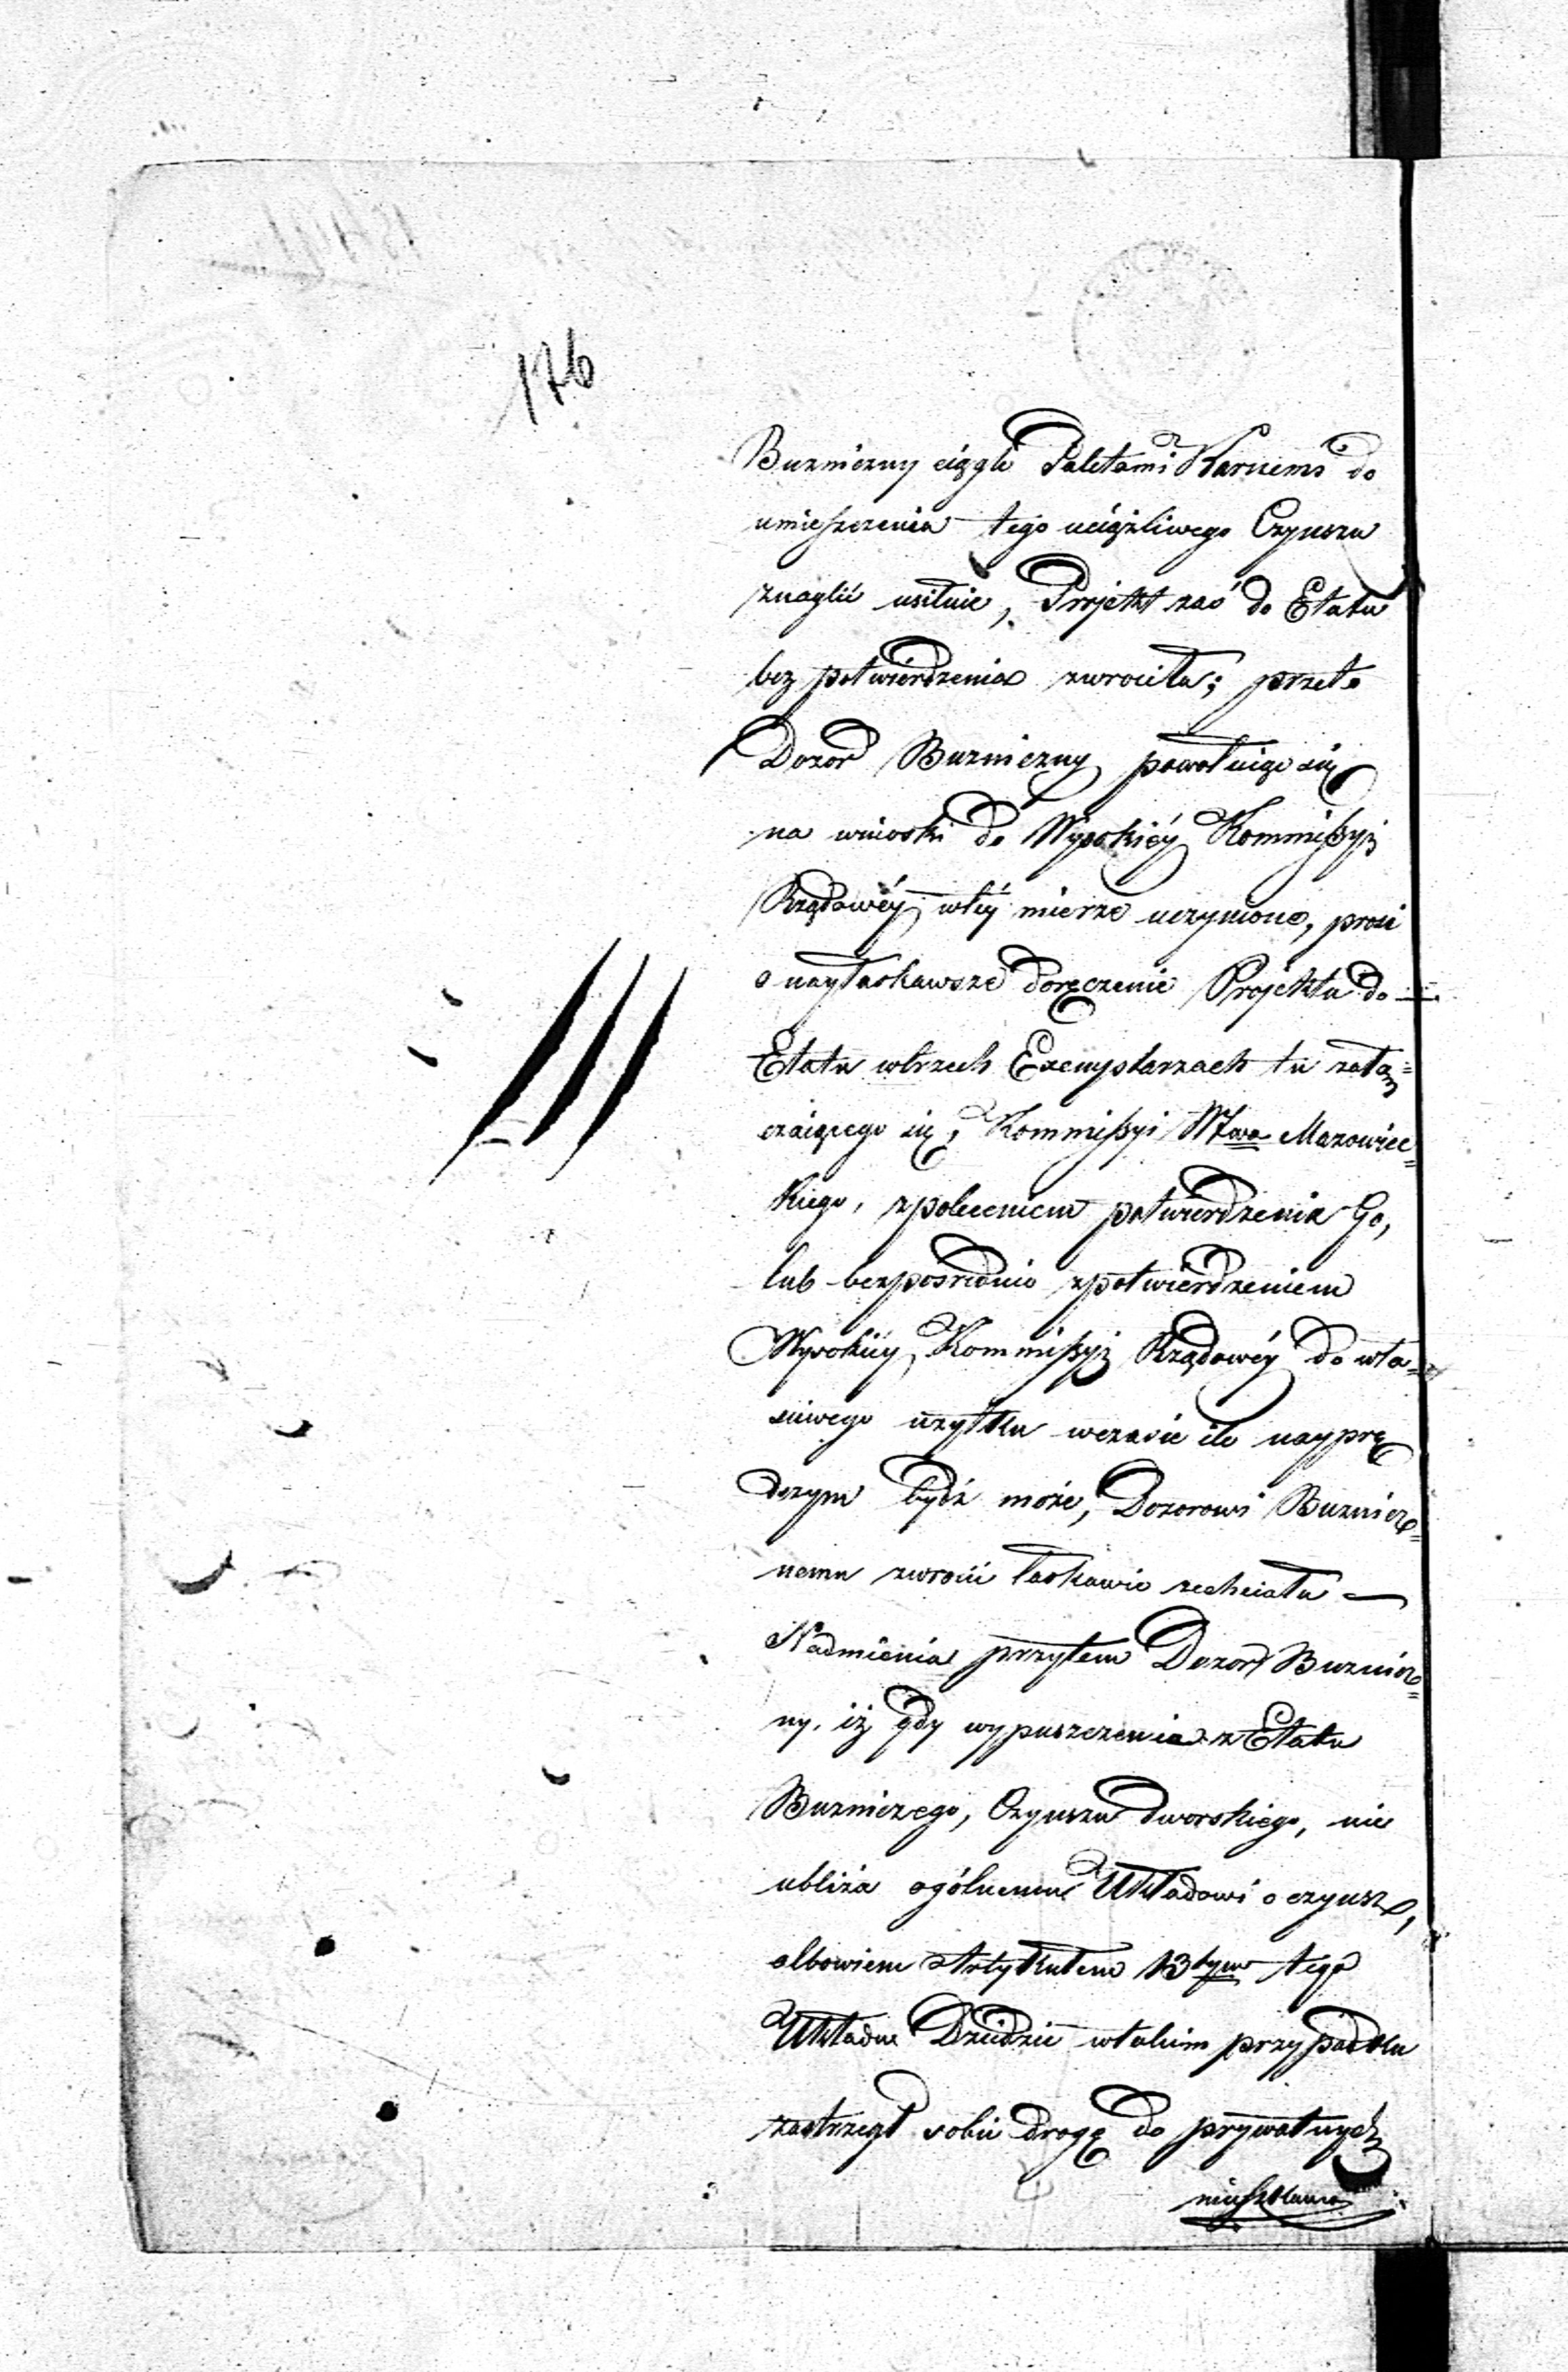 176
Buzniczny ciągle Paletami Karnemi do
umieszczenia tego uciążliwego Czynszu
znaglić usiłuie, Projekt zaś do Etatu
bez potwierdzenia zwrociła; przeto
Dozor Buzniczny powołuiąc się
na wnioski do Wysokiéy Kommißyi
Rządowéy wtéy mierze uczynione, prosi
o nayłaskawsze doręczenie Projektu do
Etatu wtrzech Exemplarzach tu załą=
czaiącego się, Kommißyi Wtwa Mazowiec=
kiego, zpoleceniem potwierdzenia Go,
lub bezpośrednio zpotwierdzeniem
Wysokiéy Kommißyi Rządowéy do wła=
sciwego użytku wczasie ile nayprę
dszym bydź może, Dozorowi Buznicz=
nemu zwrocić łaskawie zechciała —
Nadmienia przytem Dozor Buznicz=
ny, iż gdy wypuszczenie z Etatu
Buzniczego, Czynszu dworskiego, nie
ubliża ogólnemu Układowi o czynsz,
albowiem Artykułem 13tym tego
Układu Dziedzic wtakim przypadku
zastrzegł sobie drogę do prywatnych
mieszkanców